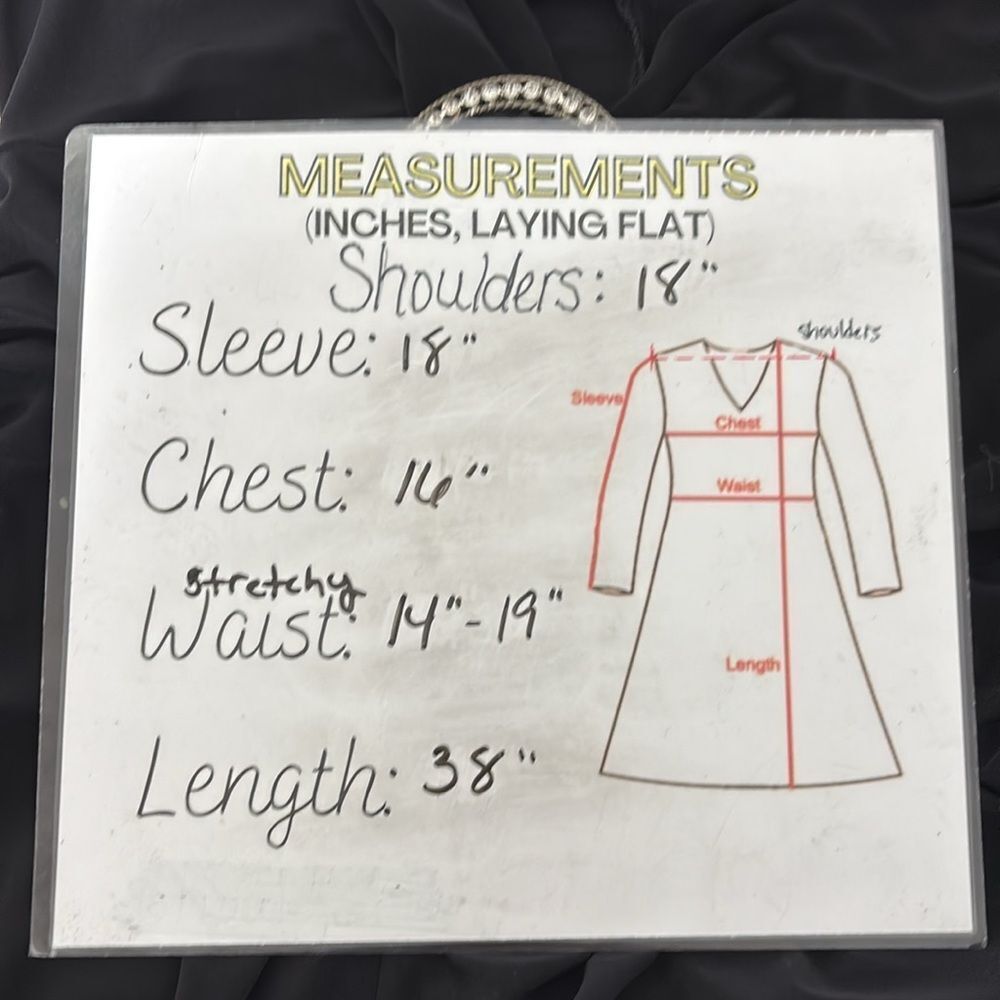 MEASUREMENTS
(INCHES, LAYING FLAT)
Shoulders: 18"
Sleeve: 18"
Chest: 16"
stretchy
Waist: 14"-19"
Length: 38"
shoulders
Sleeve
Chest
Waist
Length